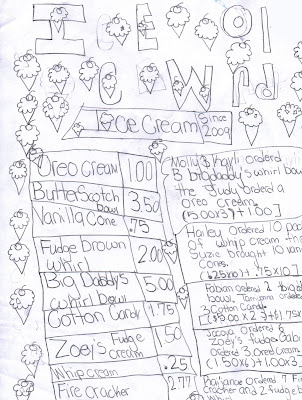 Ice
World
Ice Cream
Since
2009
Oreo Cream 1.00
Butter Scotch
Bowl 3.50
Vanilla Cone .75
Fudge Brown
Whirl 2.00
Big Daddy's
Whirl Bowl 5.00
Cotton Candy 1.75
Zoey's Fudge
Cream 1.50
Whip cream .25
Fire cracker 2.77
Molly & ordered
3 big daddy's whirl bowl
the Judy ordered a
oreo cream.
[5.00x3)+1.00]
Hailey Ordered 10 pac
of whip cream
Suzie brought 10 van
Cones.
(.25x10)+.75x10
Fabian ordered 2
bowl, ordered
3 Cotton Candy
ordered 6
Zoey's Fudge
Ordered 3 Oreo Cream
(1.50x6)+1.00x3
ordered 7 Fi
cracker and 2 fudge b